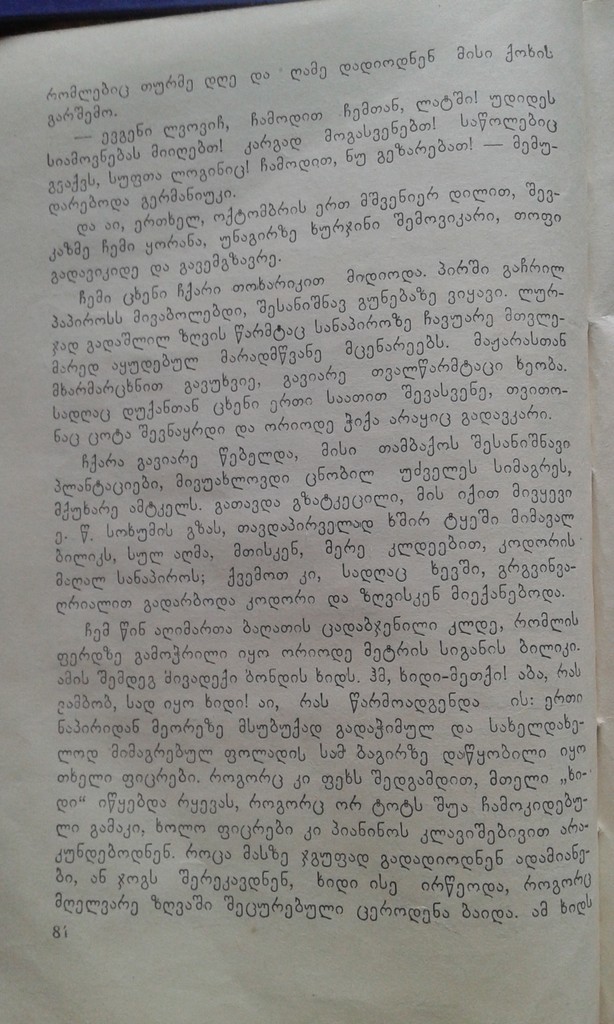 რომლებიც თურმე დღე და ღამე დადიოდნენ მისი ქოხის
გარშემო.
— ევგენი ლვოვიჩ, ჩამოდით ჩემთან, ლატში! უდიდეს
სიამოვნებას მიიღებთ! კარგად მოგასვენებთ! საწოლებიც
გვაქვს, სუფთა ლოგინიც! ჩამოდით, ნუ გეზარებათ! — მემუ-
დარებოდა გერმანიუკი.
და აი, ერთხელ, ოქტომბრის ერთ მშვენიერ დილით, შევ-
კაზმე ჩემი ყორანა, უნაგირზე ხურჯინი შემოვიკარი, თოფი
გადავიკიდე და გავემგზავრე.
ჩემი ცხენი ჩქარი თოხარიკით მიდიოდა. პირში გაჩრილ
პაპიროსს მივაბოლებდი, შესანიშნავ გუნებაზე ვიყავი. ლურ-
ჯად გადაშლილ ზღვის წარმტაც სანაპიროზე ჩავუარე მთვლე-
მარედ აყუდებულ მარადმწვანე მცენარეებს. მაჟარასთან
მხარმარცხნით გავუხვიე, გავიარე თვალწარმტაცი ხეობა.
სადღაც დუქანთან ცხენი ერთი საათით შევასვენე, თვითო-
ნაც ცოტა შევნაყრდი და ორიოდე ჭიქა არაყიც გადავკარი.
ჩქარა გავიარე წებელდა, მისი თამბაქოს შესანიშნავი
პლანტაციები, მივუახლოვდი ცნობილ უძველეს სიმაგრეს,
მქუხარე ამტკელს. გათავდა გზატკეცილი, მის იქით მივყევი
ე. წ. სოხუმის გზას, თავდაპირველად ხშირ ტყეში მიმავალ
ბილიკს, სულ აღმა, მთისკენ, მერე კლდეებით, კოდორის
მაღალ სანაპიროს; ქვემოთ კი, სადღაც ხევში, გრგვინვა-
ღრიალით გადარბოდა კოდორი და ზღვისკენ მიექანებოდა.
ჩემ წინ აღიმართა ბაღათის ცადაბჯენილი კლდე, რომლის
ფერდზე გამოჭრილი იყო ორიოდე მეტრის სიგანის ბილიკი.
ამის შემდეგ მივადექი ბონდის ხიდს. ჰმ, ხიდი-მეთქი! აბა, რას
ვამბობ, სად იყო ხიდი! აი, რას წარმოადგენდა ის: ერთი
ნაპირიდან მეორეზე მსუბუქად გადაჭიმულ და სახელდახე-
ლოდ მიმაგრებულ ფოლადის სამ ბაგირზე დაწყობილი იყო
თხელი ფიცრები. როგორც კი ფეხს შედგამდით, მთელი „ხი-
დი“ იწყებდა რყევას, როგორც ორ ტოტს შუა ჩამოკიდებუ-
ლი გამაკი, ხოლო ფიცრები კი პიანინოს კლავიშებივით არა-
კუნდებოდნენ. როცა მასზე ჯგუფად გადადიოდნენ ადამიანე-
ბი, ან ჯოგს შერეკავდნენ, ხიდი ისე ირწეოდა, როგორც
მღელვარე ზღვაში შეცურებული ცეროდენა ბაიდა. ამ ხიდს
84